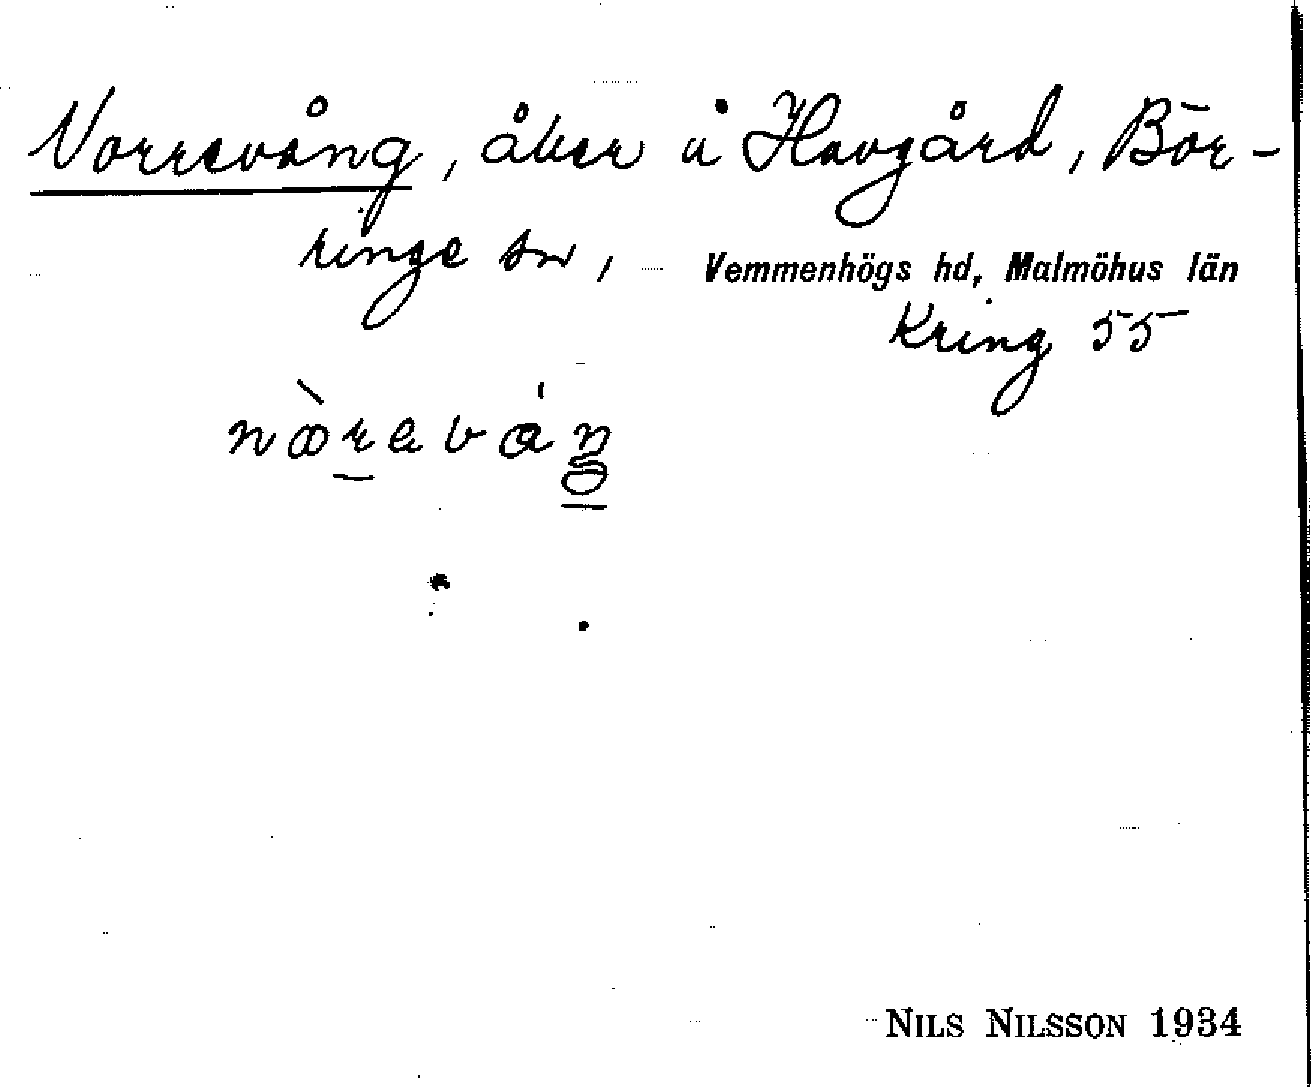 Norrevång, åker å Havgård, Bör-
ringe sn, Vemmenhögs hd, Malmöhus län
Kring 55
nòrevá
NILS NILSSON 1934